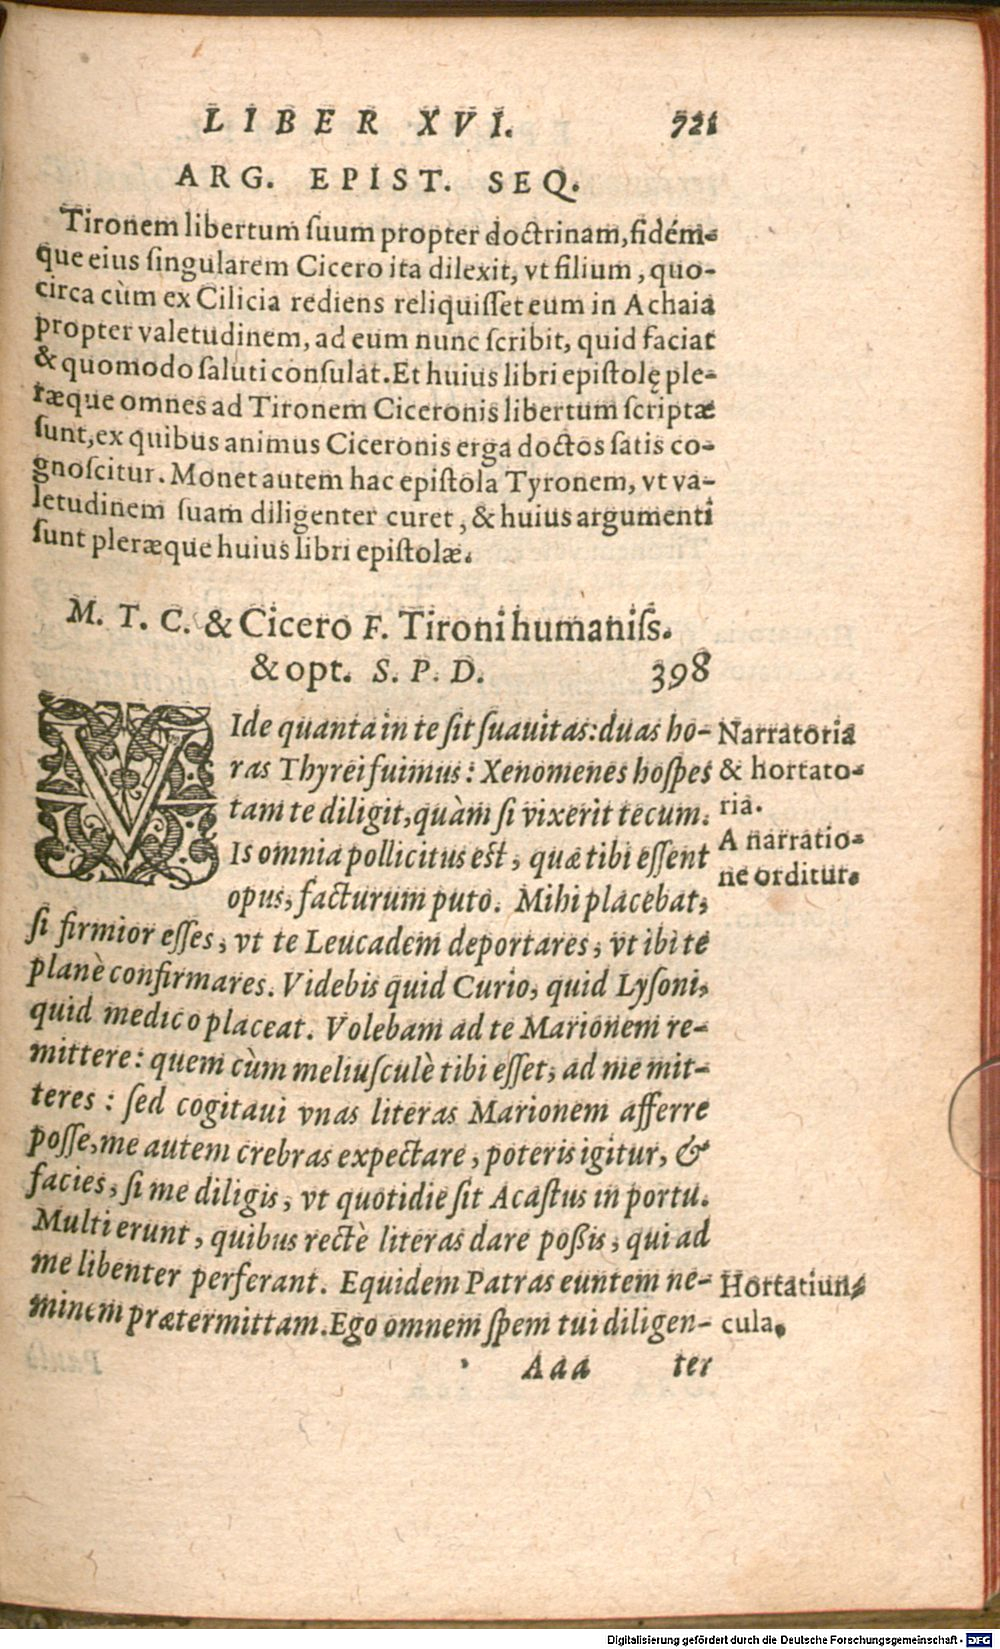 LIBER XVI. 721
ARG. EPIST. SEQ.
Tironem libertum ſuum propter doctrinam, fidém-
que eius ſingularem Cicero ita dilexit, vt filium, quo-
circa cùm ex Cilicia rediens reliquiſſet eum in Achaia
propter valetudinem, ad eum nunc ſcribit, quid faciat
& quomodo ſaluti conſulat. Et huius libri epiſtolę ple-
ræque omnes ad Tironem Ciceronis libertum ſcriptæ
ſunt, ex quibus animus Ciceronis erga doctos ſatis co-
gnoſcitur. Monet autem hac epiſtola Tyronem, vt va-
letudinem ſuam diligenter curet, & huius argumenti
ſunt pleræque huius libri epiſtolæ.
M. T. C. & Cicero F. Tironi humaniſs.
& opt. S. P. D. 398
VIde quanta in te ſit ſuauitas: duas ho-
ras Thyrei fuimus: Xenomenes hoſpes
tam te diligit, quàm ſi vixerit tecum.
Is omnia pollicitus est, quæ tibi eſſent
opus, facturum puto. Mihi placebat,
ſi firmior eſſes, vt te Leucadem deportares, vt ibi te
planè confirmares. Videbis quid Curio, quid Lyſoni,
quid medico placeat. Volebam ad te Marionem re-
mittere: quem cùm meliuſculè tibi eſſet, ad me mit-
teres: ſed cogitaui vnas literas Marionem afferre
poſſe, me autem crebras expectare, poteris igitur, &
facies, ſi me diligis, vt quotidie ſit Acaſtus in portu.
Multi erunt, quibus rectè literas dare poßis, qui ad
me libenter perferant. Equidem Patras euntem ne-
minem prætermittam. Ego omnem ſpem tui diligen-
Aaa ter
Narratoria
& hortato-
ria.
A narratio-
ne orditur.
Hortatiun-
cula.
Digitalisierung gefördert durch die Deutsche Forschungsgemeinschaft - DFG